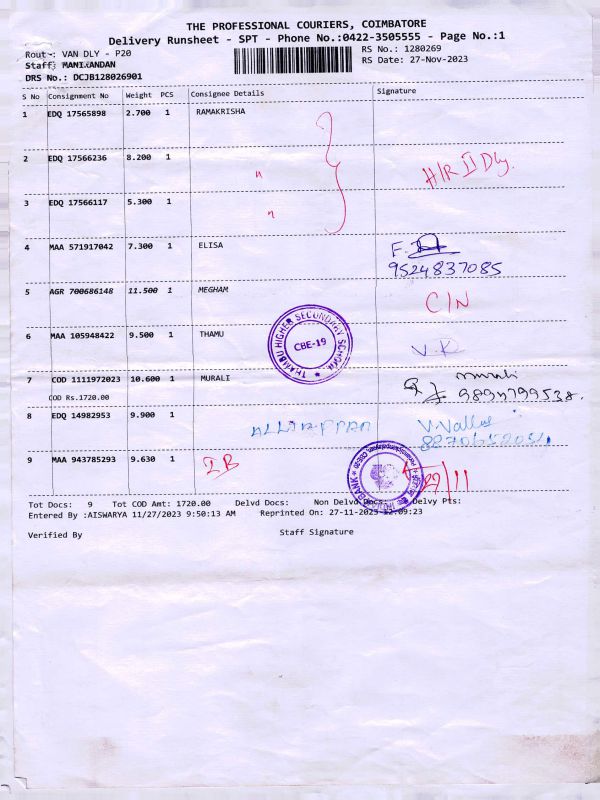 THE PROFESSIONAL COURIERS, COIMBATORE
Delivery Runsheet - SPT - Phone No.:0422-3505555 - Page No.:1
Route: VAN DLY - P20
RS No.: 1280269
Staff: MANIKANDAN
RS Date: 27-Nov-2023
DRS No.: DCJB128026901
S No Consignment No Weight PCS Consignee Details Signature
1 EDQ 17565898 2.700 1 RAMAKRISHA
2 EDQ 17566236 8.200 1 " H/R II Dly.
3 EDQ 17566117 5.300 1 "
4 MAA 571917042 7.300 1 ELISA
9524837085
5 AGR 700686148 11.500 1 MEGHAM C/N
6 MAA 105948422 9.500 1 THAMU V.R
HIGHER SECONDARY SCHOOL
CBE-19
7 COD 1111972023 10.600 1 MURALI murali
COD Rs.1720.00
8 EDQ 14982953 9.900 1
9 MAA 943785293 9.630 1 IB 27/11
BANK
Tot Docs: 9 Tot COD Amt: 1720.00 Delvd Docs: Non Delvd Docs: Delvy Pts:
Entered By :AISWARYA 11/27/2023 9:50:13 AM Reprinted On: 27-11-2023 12:09:23
Verified By Staff Signature